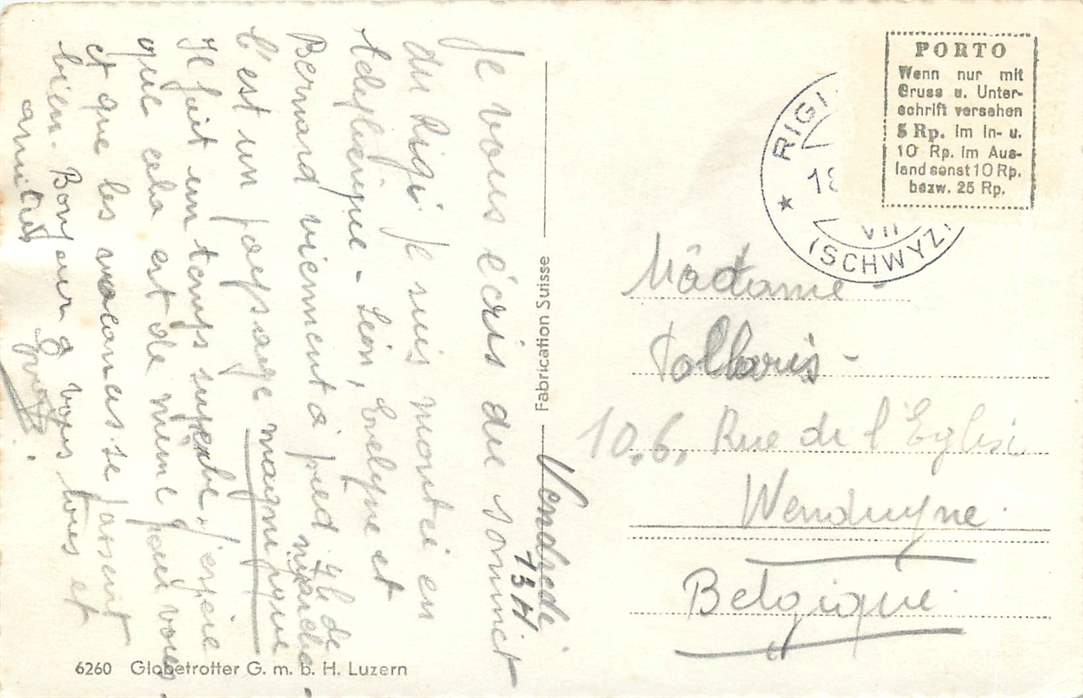 Vendredi
13 H
Je vous écris du sommet
du Rigi je suis monté en
télépherique - Léon, Evelyne et
Bernard viennent à pied 4h de marche
C'est un paysage magnifique
Il fait un temps superbe, j'espère
que cela est de même pour vous
et que les vacances se passent
bien. Bonjour a vous tous et
amitiés
PORTO
Wenn nur mit
Gruss u. Unter-
schrift versehen
5 Rp. im In- u.
10 Rp. im Aus-
land sonst 10 Rp.
bezw. 25 Rp.
RIGI
18
VII
(SCHWYZ)
Madame -
10.6. Rue de l'Eglise
Wenduyne
Belgique
Fabrication Suisse
6260 Globetrotter G. m. b. H. Luzern